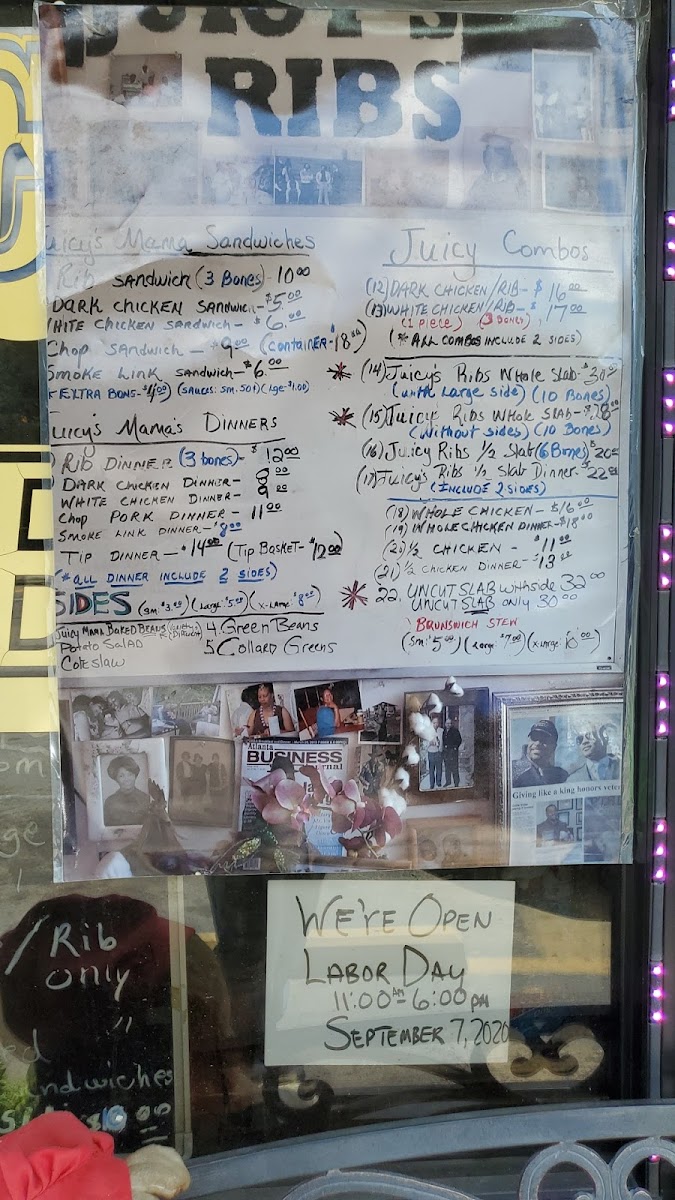 JUICY'S
RIBS
Juicy's Mama Sandwiches
Rib Sandwich (3 Bones) - 10.00
Dark Chicken Sandwich - $5.00
White Chicken Sandwich - $6.00
Chop Sandwich - $9.00 (Container - $18.00)
Smoke Link Sandwich - $6.00
* Extra Bons - $4.00) (Sauces: Sm. 50¢) (Lge - $1.00)
Juicy's Mama's Dinners
Rib Dinner (3 bones) - $12.00
Dark Chicken Dinner - 8.00
White Chicken Dinner - 9.00
Chop Pork Dinner - 11.00
Smoke Link Dinner - $8.00
Tip Dinner - $14.00 (Tip Basket - $12.00)
(* All Dinner Include 2 Sides)
SIDES (Sm. $3.00) (Large $5.00) (X-Large $8.00)
Juicy Mama Baked Beans
Potato Salad
Coleslaw
4. Green Beans
5. Collard Greens
Juicy Combos
(12) Dark Chicken/Rib - $16.00
(13) White Chicken/Rib - $17.00
(1 piece) (3 Bones)
(* All Combos Include 2 Sides)
* (14) Juicy's Ribs Whole Slab - $30.00
(with Large side) (10 Bones)
* (15) Juicy's Ribs Whole Slab - $28.00
(without sides) (10 Bones)
(16) Juicy Ribs 1/2 Slab (6 Bones) $20.00
(17) Juicy's Ribs 1/2 Slab Dinner - $22.00
(Include 2 Sides)
(18) Whole Chicken - $16.00
(19) Whole Chicken Dinner - $18.00
(20) 1/2 Chicken - $11.00
(21) 1/2 Chicken Dinner - $13.00
* 22. Uncut Slab with side 32.00
Uncut Slab only 30.00
Brunswich Stew
(Sm: $5.00) (Large: $7.00) (X-Large: 10.00)
Atlanta
BUSINESS
Journal
Giving like a king honors vete
WE'RE OPEN
LABOR DAY
11:00 AM - 6:00 PM
SEPTEMBER 7, 2020
/Rib
only
"
ed
andwiches